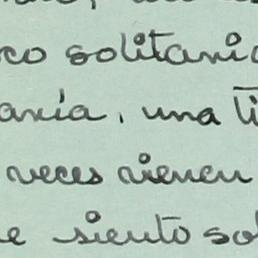 co solitari
anía, una ti
veces vienen
e siento sol